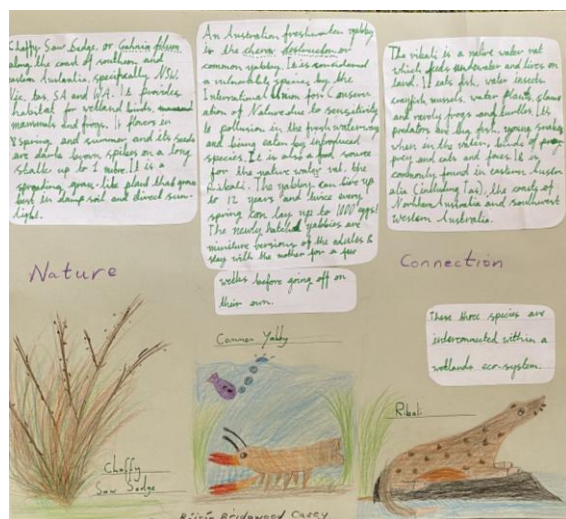 Chaffy Saw Sedge, or Gahnia filum
along the coast of southern and
eastern Australia, specifically NSW,
Vic, tas SA and WA. It provides
habitat for wetland birds,
mammals and frogs. It flowers in
spring and summer and its seeds
are dark brown spikes on a long
stalk up to 1 metre. It is a
spreading, grass-like plant that grows
best in damp soil and direct sun-
light.
An Australian freshwater yabby
is the cherax destructor or
common yabby. It is considered
a vulnerable species by the
International Union for Conserv
ation of Nature due to sensitivity
to pollution in the freshwaterway
and being eaten by introduced
species. It is also a food source
for the native water rat, the
Rakali. The yabby can live up
to 12 years and twice every
spring can lay up to 1000 eggs!
The newly hatched yabbies are
miniture versions of the adults &
stay with the mother for a few
weeks before going off on
their own.
The rakali is a native water rat
which feeds underwater and lives on
land. It eats fish, water insects,
crayfish, mussels, water plants, clams
and rarely frogs and turtles. Its
predators are big fish, young snakes
when in the water, birds of prey
prey and cats and foxes. It is
commonly found in eastern Austr
alia (including Tas), the coasts of
Northern Australia and southwest
Western Australia.
Nature
Connection
These three species are
interconnected within a
wetlands eco-system.
Common Yabby
Rakali
Chaffy
Saw Sedge
Bridgwood Casey